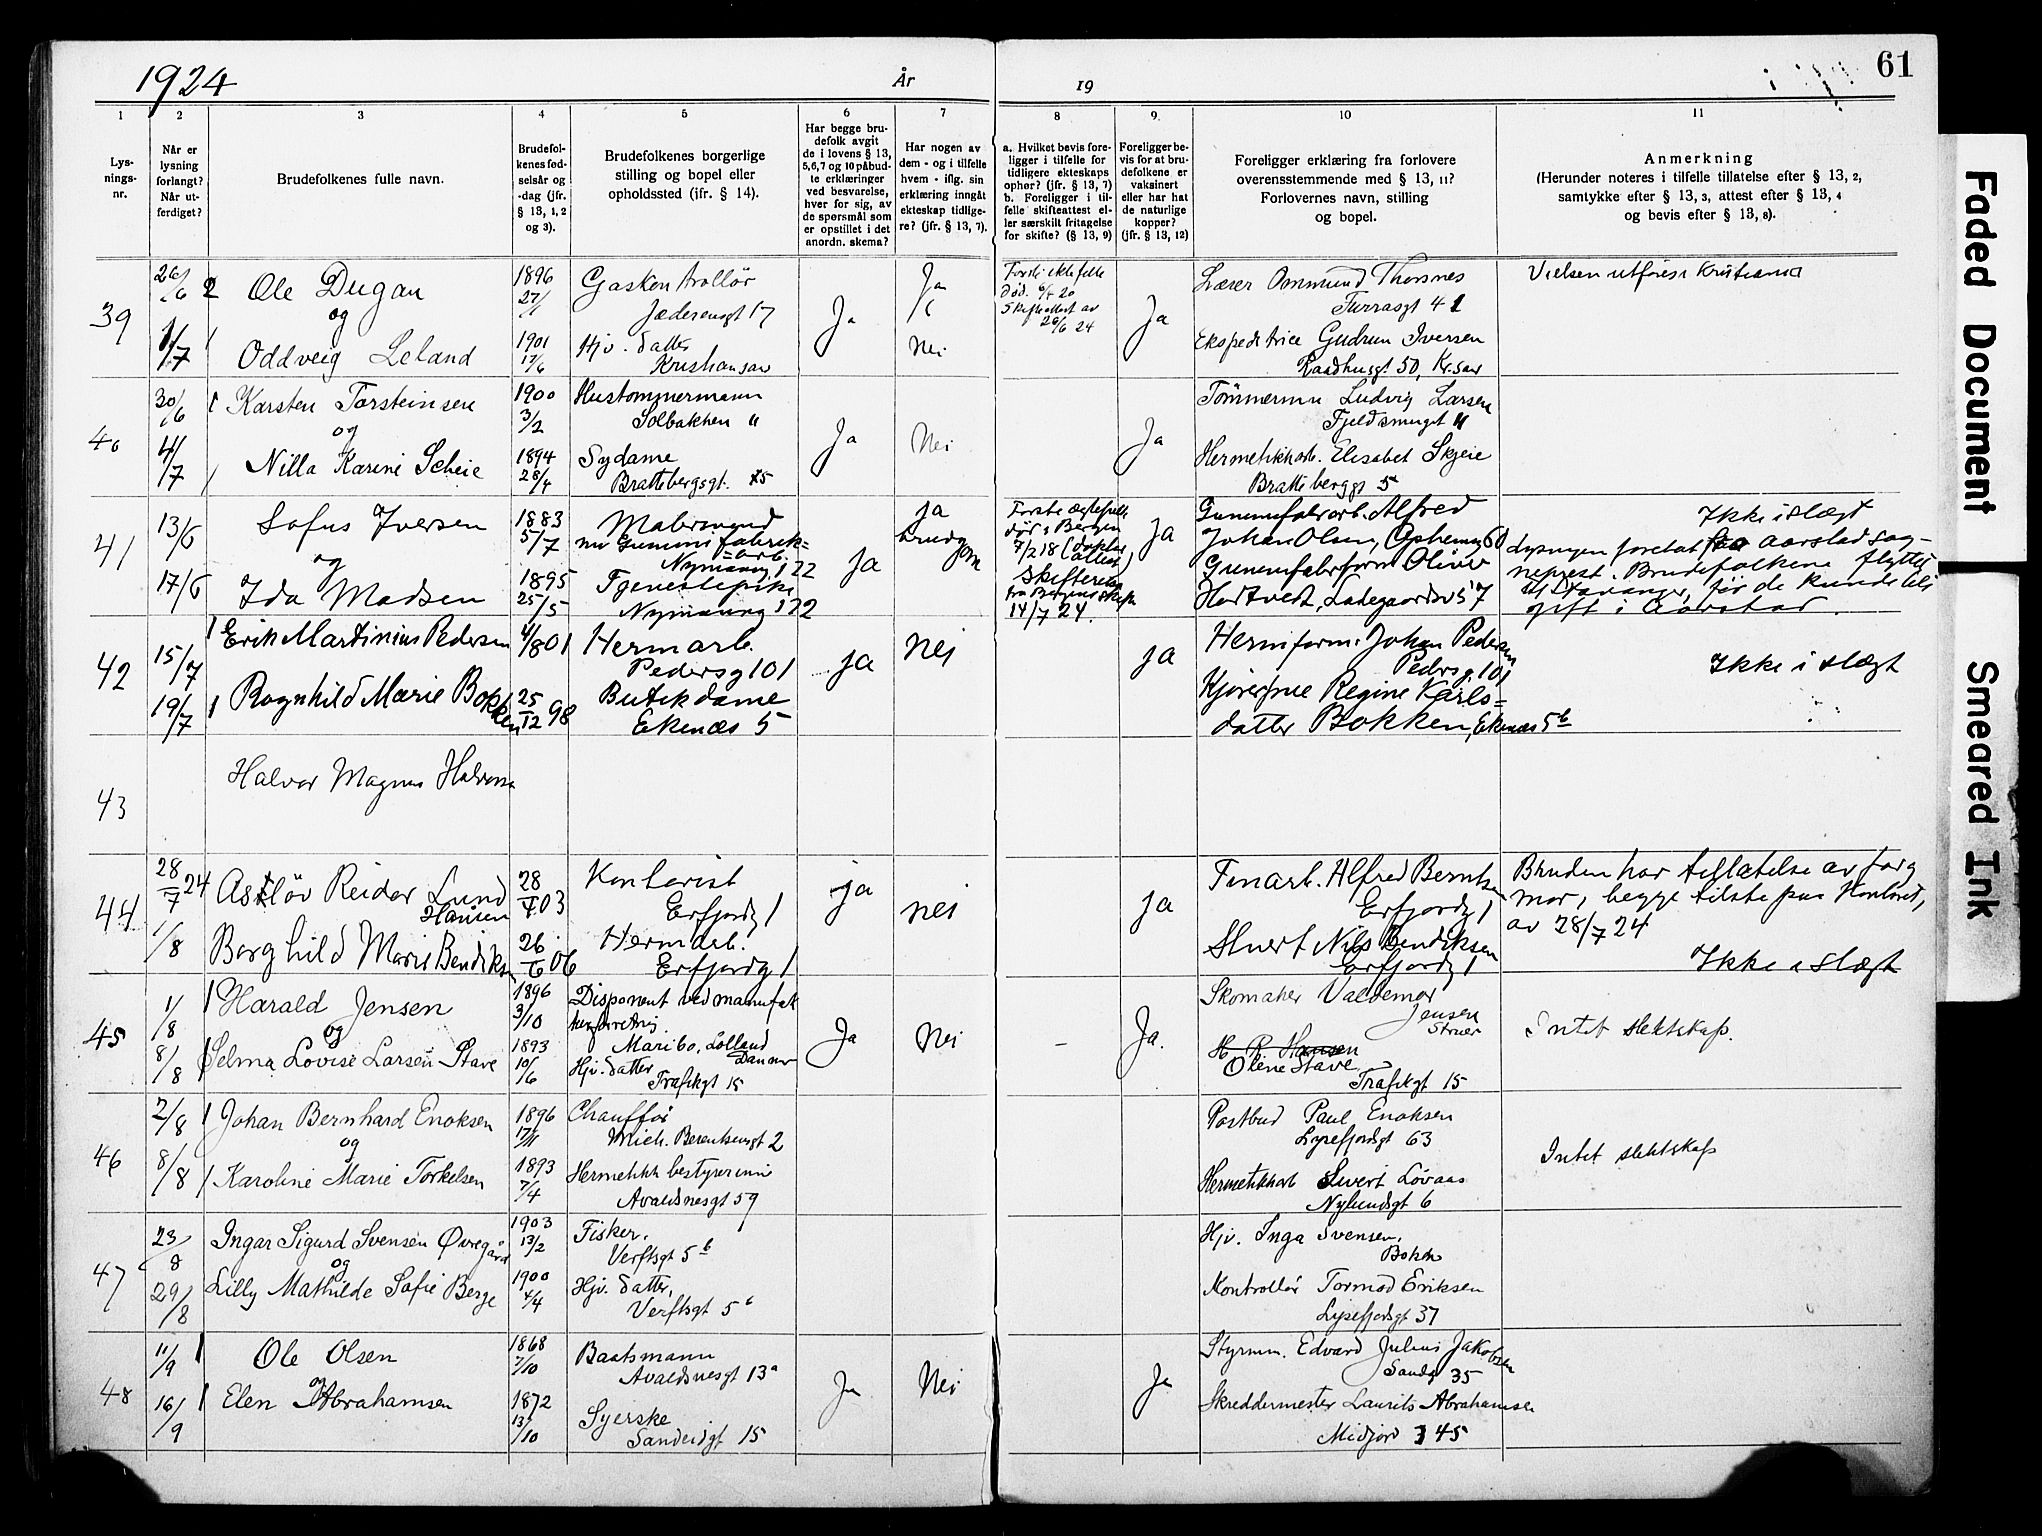 1924
År
19
61
1
2
3
4
5
6
7
8
9.
10
11
Lys-
nings-
nr.
Når er
lysning
forlangt?
Når ut-
ferdiget?
Brudefolkenes fulle navn.
Brudefol-
kenes fød-
selsår og
-dag (jfr.
§ 13, 1, 2
og 3).
Brudefolkenes borgerlige
stilling og bopel eller
opholdssted (ifr. § 14).
Har begge bru-
defolk avgit
de i lovens § 13,
5,6,7 og 10 påbud-
te erklæringer
ved besvarelse,
hver for sig, av
de spørsmål som
er opstillet i det
anordn. skema?
Har nogen av
dem - og i tilfelle
hvem - iflg. sin
erklæring inngåt
ekteskap tidlige-
re? (jfr. § 13, 7).
a. Hvilket bevis fore-
ligger i tilfelle for
tidligere ekteskaps
ophør? (jfr. § 13, 7)
b. Foreligger i til-
felle skifteattest el-
ler særskilt fritagelse
for skifte? (§ 13, 9)
Foreligger be-
vis for at bru-
defolkene er
vaksinert
eller har hat
de naturlige
kopper?
(jfr. § 13, 12)
Foreligger erklæring fra forlovere
overensstemmende med § 13, 11?
Forlovernes navn, stilling
og bopel.
Anmerkning
(Herunder noteres i tilfelle tillatelse efter § 13, 2,
samtykke efter § 13, 3, attest efter § 13, 4
og bevis efter § 13, 8).
39
26/6
1/7
Ole Dugan
og
Oddveig Leland
1896
27/1
1901
17/6
Jæderensgt 17
Hjv. datter
Kristiansan
Ja
Ja
Nei
død. 6/4 20
Skifteattest av
26/6 24
Ja
Thorsnes
Ekspeditrice Gudrun Iversen
Raadhusgt 50, Kr.san
40
30/6
4/7
Karsten Torsteinsen
og
Nilla Karine Scheie
1900
3/2
1894
28/4
Hustømmermann
Solbakken 11
Sydame
Brattebergsgt.
Ja
Nei
Ja
Tømmermn Ludvig Larsen
Fjeldsmuget 11
Hermetikkarb. Elisabet Skjeie
Bratteberggt 5
41
13/6
17/6
Sofus Iversen
og
Ida Madsen
1883
5/7
1895
25/5
Malersvend
nu Gummifabrik=
arb.
Nymansvg 122
Tjenestepike
Nymansvg 122
ja
ja
brudgom
Første ægtefelle
død i Bergen
7/2 18 (doktor
attest)
Skifteretten
14/7 24.
ja
Gummifabrarb. Alfred
Johan Olsen,
Gummifabrform Oliver
Hartvedt, Ladegaardsv 57
Ikke i slægt
Lysningen foretat Aarstad sog-
neprest. Brudefolkene flyttet
til Stavanger, før de kunde bli
gift i Aarstad.
42
15/7
19/7
Erik Martinius Pedersen
Ragnhild Marie Bokken
4/8 01
25/12 98
Hermarb.
Pedersg 101
Butikdame
Ekenæs 5
ja
nei
ja
Hermform. Johan Pedersen
Pedersg. 101
Kjørerfrue Regine Karls=
datter Bokken, Ekenæs 5b
Ikke i slægt
43
Halvor Magnus Halvorsen
44
28/7 24
1/8
Asløv Reidar Lund
Hansen
Borghild Marie Bendiksen
28/1 03
26/6 06
Kontorist
Erfjordg 1
Hermarb.
Erfjordg 1
ja
nei
ja
Tinarb. Alfred Berntsen
Erfjordg 1
Stuert Nils Bendiksen
Erfjordg 1
Bruden har tillatelse av far og
mor, begge tilstede paa Kontoret,
av 28/7 24
Ikke i slægt
45
1/8
8/8
Harald Jensen
og
Selma Lovise Larsen Stave
1896
3/10
1893
10/6
Disponent ved manufak
turforretning.
Maribo, Lolland
Danmar
Hjv. datter
Trafikgt 15
Ja
Nei
–
Ja.
Skomaker Valdemar
Jensen
Struer
H. R. Hansen
Olene Stave
Trafikgt 15
Intet slektskap.
46
2/8
8/8
Johan Bernhard Enoksen
og
Karoline Marie Torkelsen
1896
17/11
1893
7/4
Chauffør
Mich. Berentsensgt 2
Hermetikk bestyrerinne
Avaldsnesgt 59
Postbud Paul Enoksen
Lysefjordsgt 63
Hermetikkarb Sivert Løvaas
Nylundsgt 6
Intet slektskap
47
23/8
29/8
Ingar Sigurd Svensen Øvregård
og
Lilly Mathilde Sofie Berge
1903
13/2
1900
4/4
Fisker.
Verftsgt 5b
Hjv. datter,
Verftsgt 5b
Hjv. Inga Svensen,
Bokn
Kontrollør Tormod Eriksen
Lysefjordsgt 37
48
11/9
16/9
Ole Olsen
og
Elen Abrahamsen
1868
7/10
1872
13/10
Baatsmann
Avaldsnesgt 13a
Syerske
Sandeidgt 15
Ja
Nei
Ja
Styrmn. Edvard Julius Jakobsen
Sandg 35
Skreddermester Laurits Abrahamsen
45
Faded Document
Smeared Ink